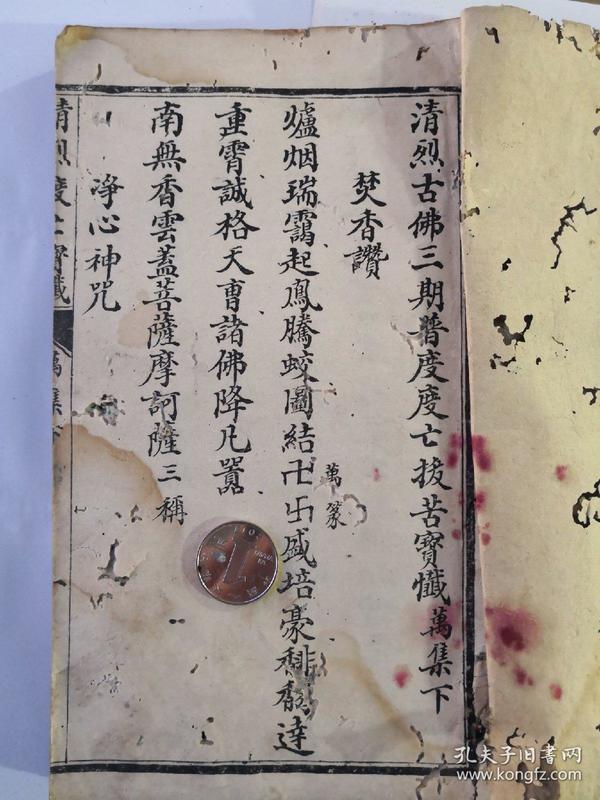 清烈古佛三期普度度亡拔苦寶懺萬集下
焚香讚
爐烟瑞靄起鳳騰蛟圖結卍卐盛培豪馡馥達
萬篆
重霄誠格天曹諸佛降凡囂
南無香雲蓋菩薩摩訶薩三稱
淨心神咒
清烈度亡寶懺
萬集下
孔夫子旧书网
www.kongfz.com